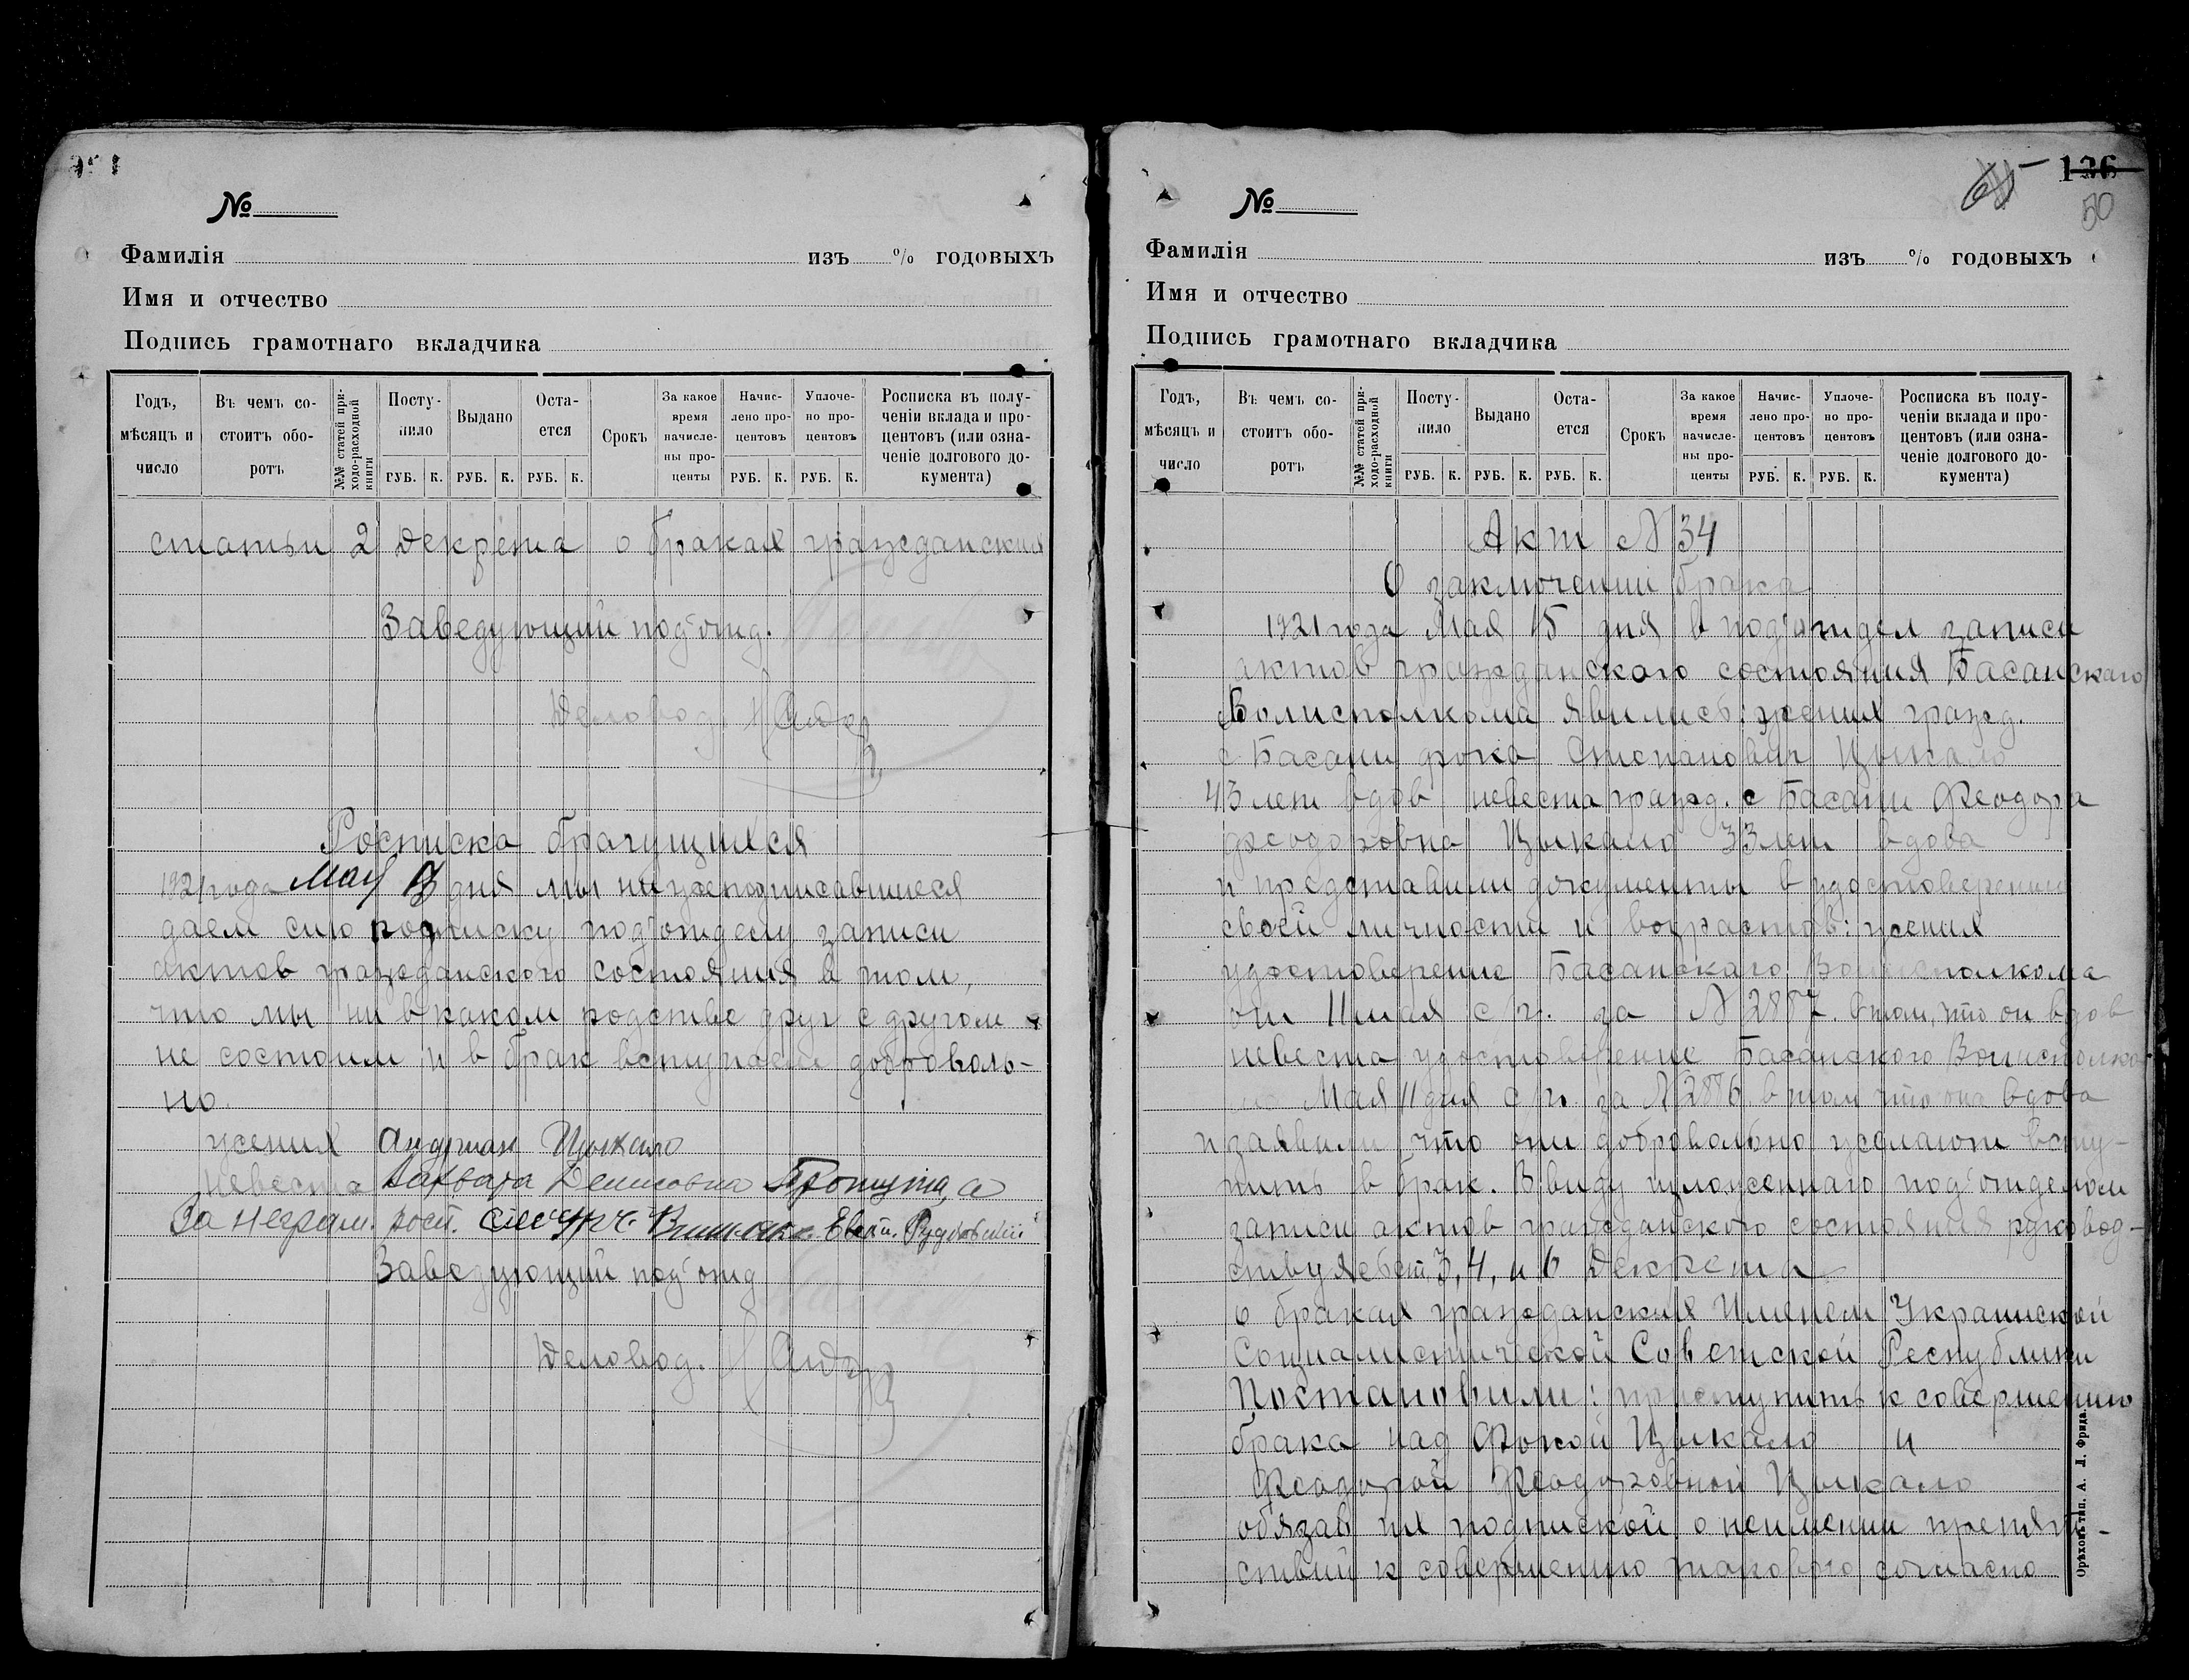 №
Фамилія изъ % годовыхъ
Имя и отчество
Подпись грамотнаго вкладчика
Годъ, мѣсяцъ и число
Въ чемъ состоитъ оборотъ
№№ статей приходо-расходной книги
Посту-пило РУБ. К.
Выдано РУБ. К.
Оста-ется РУБ. К.
Срокъ
За какое время начисле-ны про-центы
Начис-лено про-центовъ РУБ. К.
Уплоче-но про-центовъ РУБ. К.
Росписка въ полу-ченіи вклада и про-центовъ (или озна-ченіе долгового до-кумента)
статьи 2 декрета о браках гражданских
Заведующий под'отд.
Деловод.
Росписка брачущихся
1921 года Мая дня мы нижеподписавшиеся
даем сию подписку под'отделу записи
актов гражданского состояния в том,
что мы ни в каком родстве друг с другом
не состоим и в брак вступаем доброволь-
но.
жених Андриан Цыкало
Невеста Варвара Денисовна
За неграм. росп.
Заведующий под'отд
Деловод.
136
50
№
Фамилія изъ % годовыхъ
Имя и отчество
Подпись грамотнаго вкладчика
Годъ, мѣсяцъ и число
Въ чемъ состоитъ оборотъ
№№ статей приходо-расходной книги
Посту-пило РУБ. К.
Выдано РУБ. К.
Оста-ется РУБ. К.
Срокъ
За какое время начисле-ны про-центы
Начис-лено про-центовъ РУБ. К.
Уплоче-но про-центовъ РУБ. К.
Росписка въ полу-ченіи вклада и про-центовъ (или озна-ченіе долгового до-кумента)
Акт N 34
О заключении брака
1921 года Мая 15 дня в под'отдел записи
актов гражданского состояния Басанскаго
Волисполкома явились: жених гражд.
с Басани Фока Степанович Цыкало
43 лет вдов невеста гражд. с Басани Феодора
Феодоровна Цыкало 33 лет вдова
и представили документы в удостоверении
своей личности и возрастов: жених
удостоверение Басанскаго Волисполкома
от 11 мая с/г. за N 2887. в том, что он вдов
невеста удостоверение Басанского Волисполко-
ма Мая 11 дня с/г. за N 2886 в том что она вдова
и заявили что они добровольно желают всту-
пить в брак. Ввиду изложенного под'отделом
записи актов гражданского состояния руковод-
ствуясь ст. 3, 4, и 6 Декрета
о браках гражданских Именем Украинской
Социалистической Советской Республики
Постановили: приступить к совершению
брака над Фокой Цыкало и
Феодорой Феодоровной Цыкало
обязав их подпиской о неимении препят-
ствий к совершению такового согласно
Орѣховъ тип. А. Л. Фрида.